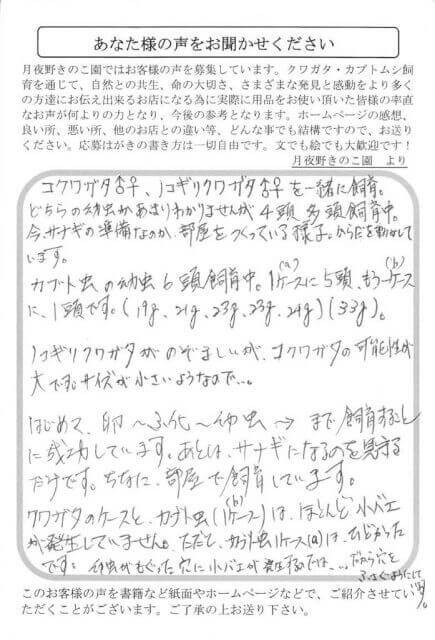 あなた様の声をお聞かせください
月夜野きのこ園ではお客様の声を募集しています。クワガタ・カブトムシ飼
育を通じて、自然との共生、命の大切さ、さまざまな発見と感動をより多く
の方達にお伝え出来るお店になる為に実際に用品をお使い頂いた皆様の率直
なお声が何よりの力となり、今後の参考となります。ホームページの感想、
良い所、悪い所、他のお店との違い等、どんな事でも結構ですので、お送り
ください。応募はがきの書き方は一切自由です。文でも絵でも大歓迎です！
月夜野きのこ園 より
コクワガタ♂♀、ノコギリクワガタ♂♀を一緒に飼育。
どちらの幼虫かあまりわかりませんが4頭多頭飼育中。
今、サナギの準備なのか、部屋をつくっている様子。からだを動かして
います。
カブト虫の幼虫6頭飼育中。1ケース(a)に5頭、もう一ケース(b)
に、1頭です。(19g、21g、23g、23g、24g)(33g)。
ノコギリクワガタがのぞましいが、コクワガタの可能性が
大です。サイズが小さいようなので…。
はじめて、卵〜ふ化〜幼虫→まで飼育すること
に成功しています。あとは、サナギになるのを見守る
だけです。ちなみに、部屋で飼育しています。
クワガタのケースと、カブト虫(1ケース)(b)は、ほとんど小バエ
が発生していません。ただし、カブト虫1ケース(a)は、ひどかった
です。幼虫がもぐった穴に小バエが…だから穴を
ふさぐようにして
このお客様の声を書籍など紙面やホームページなどで、ご紹介させてい
ただくことがございます。ご了承の上お送り下さい。